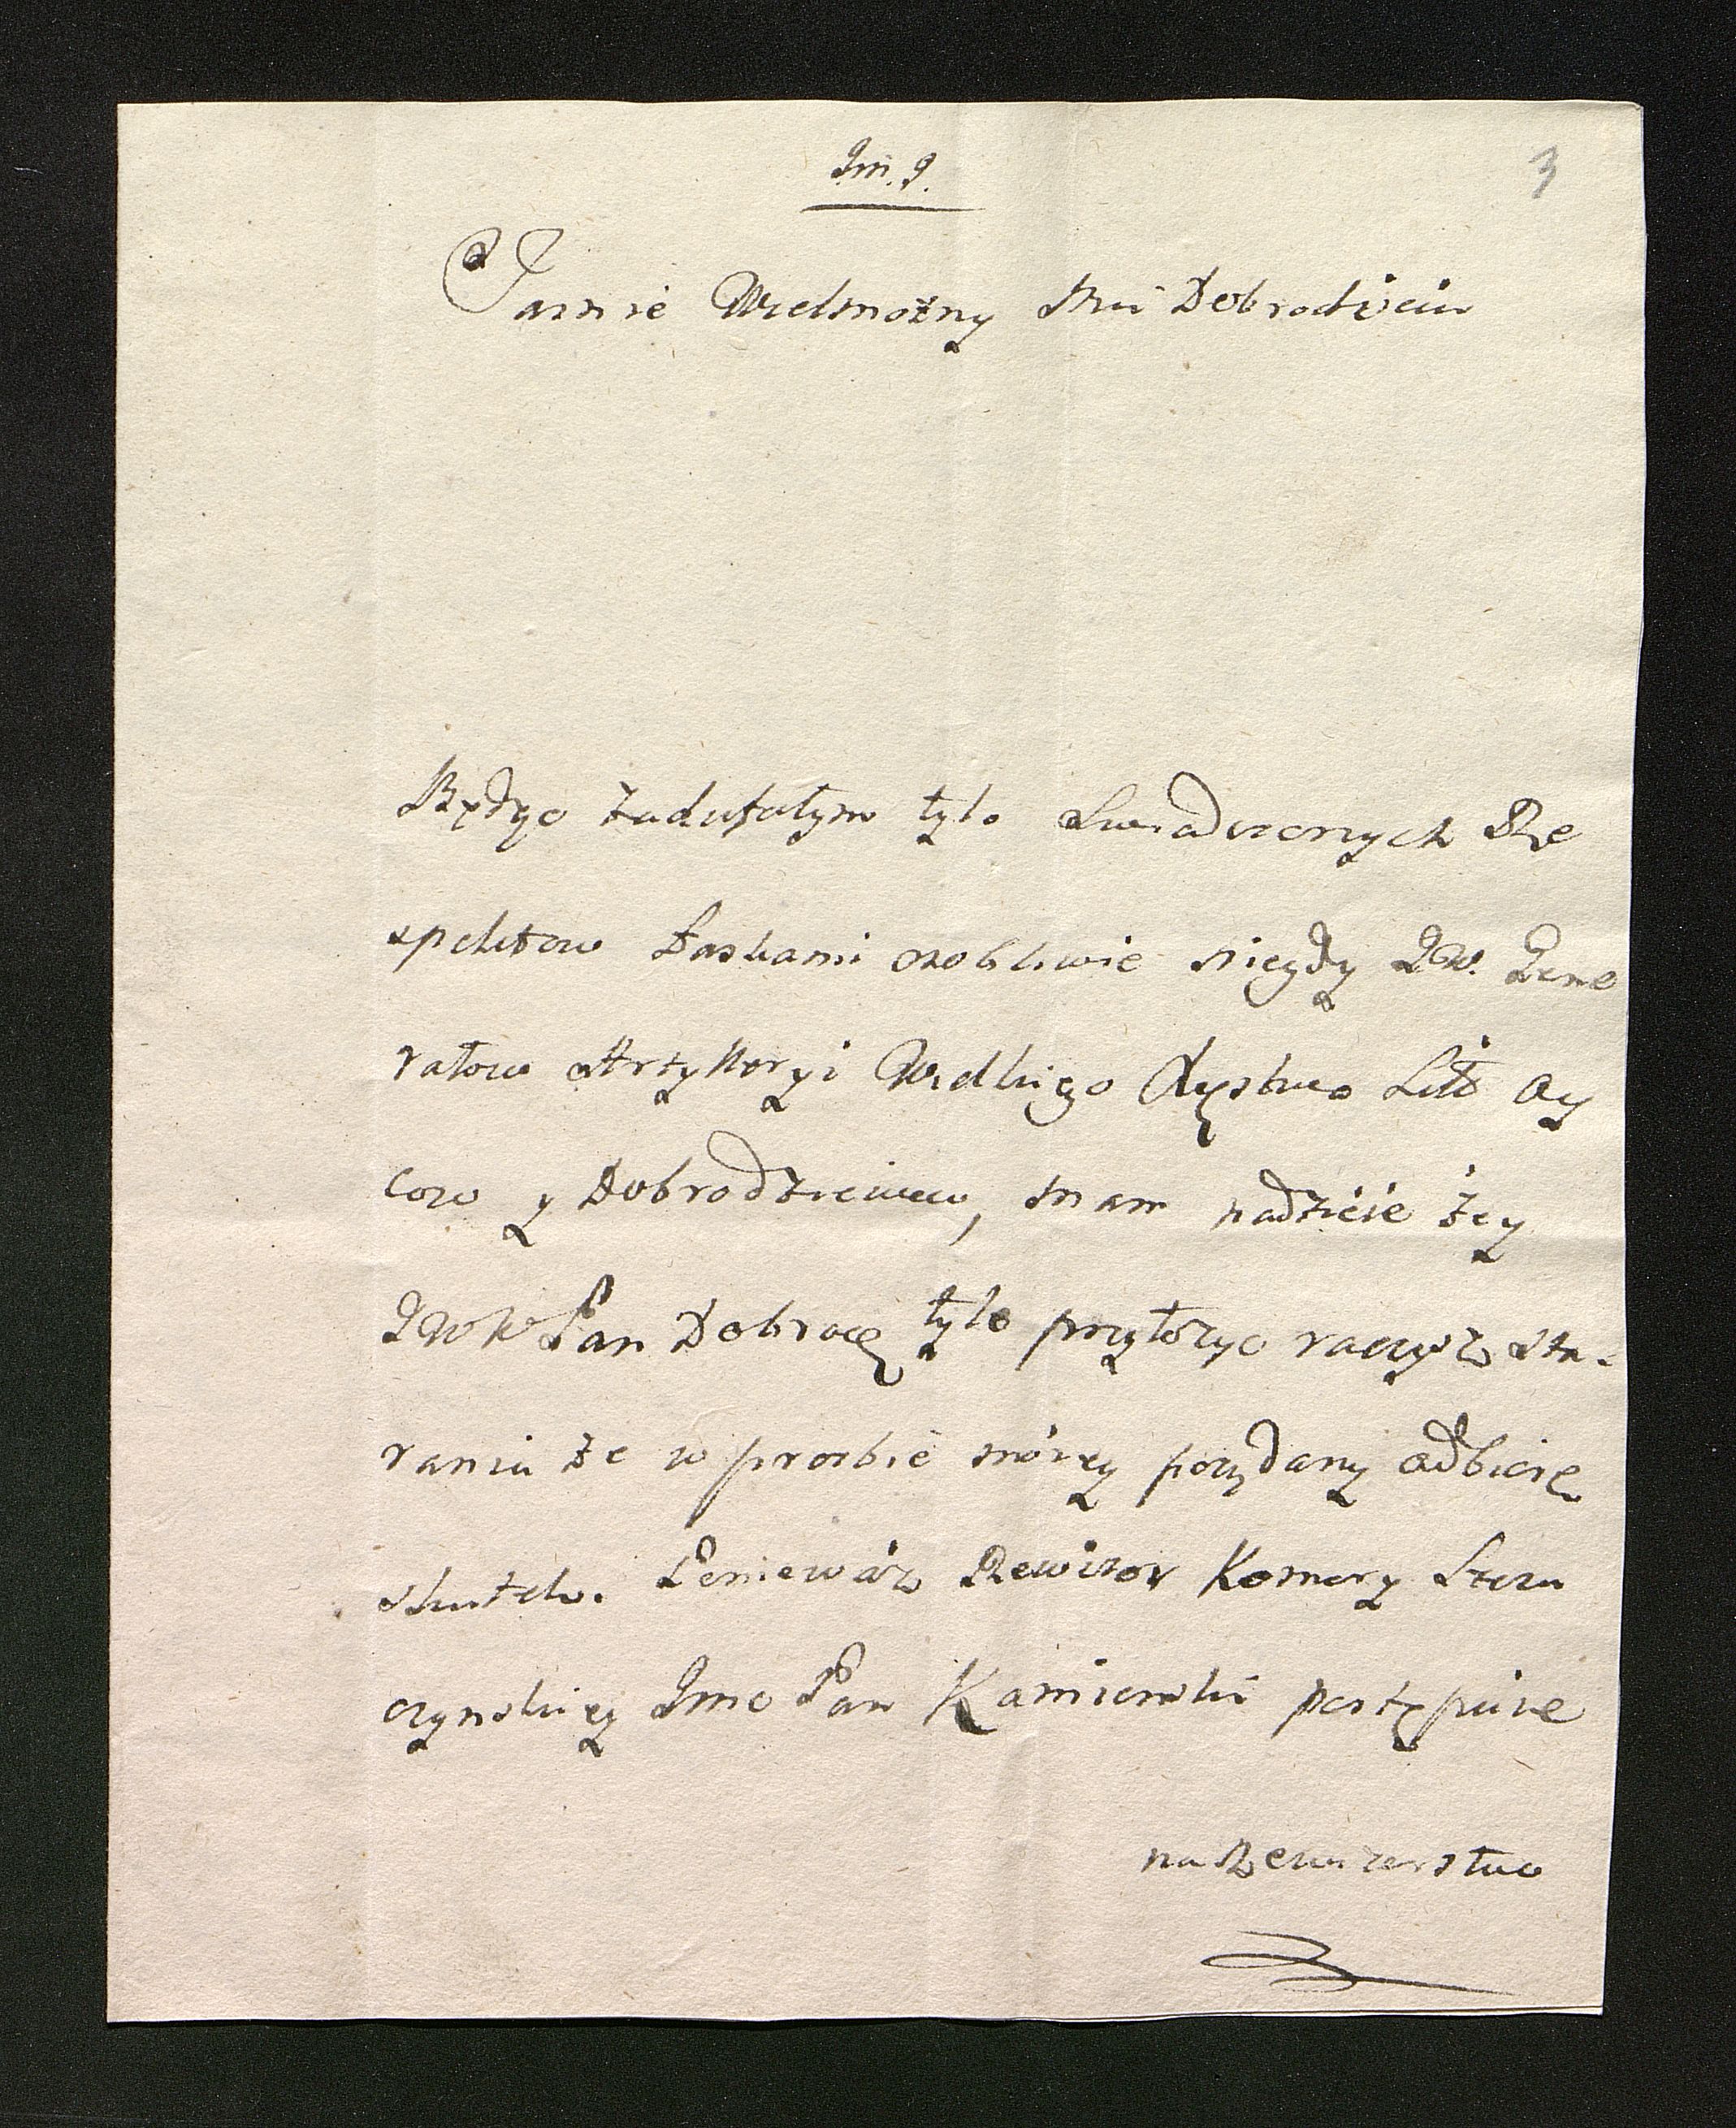 Im. 9.
3
Jasnie Wielmożny Mci Dobrodzieiu
Będąc zadufałym tylo Swiadczonych Re
spektow Łaskami osobliwie niegdy JW. Gene
rałow Artylleryi Wielkiego Xięstwa Litt Oy
cow y Dobrodzieiow, mam nadzieie żey
JWW Pan Dobrocię tyle przyłożyc raczysz sta-
rania że w prozbie moiey pożądany odbiorę
skutek. Ponieważ Rewizor Komory Szczu
czynskiey Imc Pan Kamienski postępuie
na Rewizerstwo